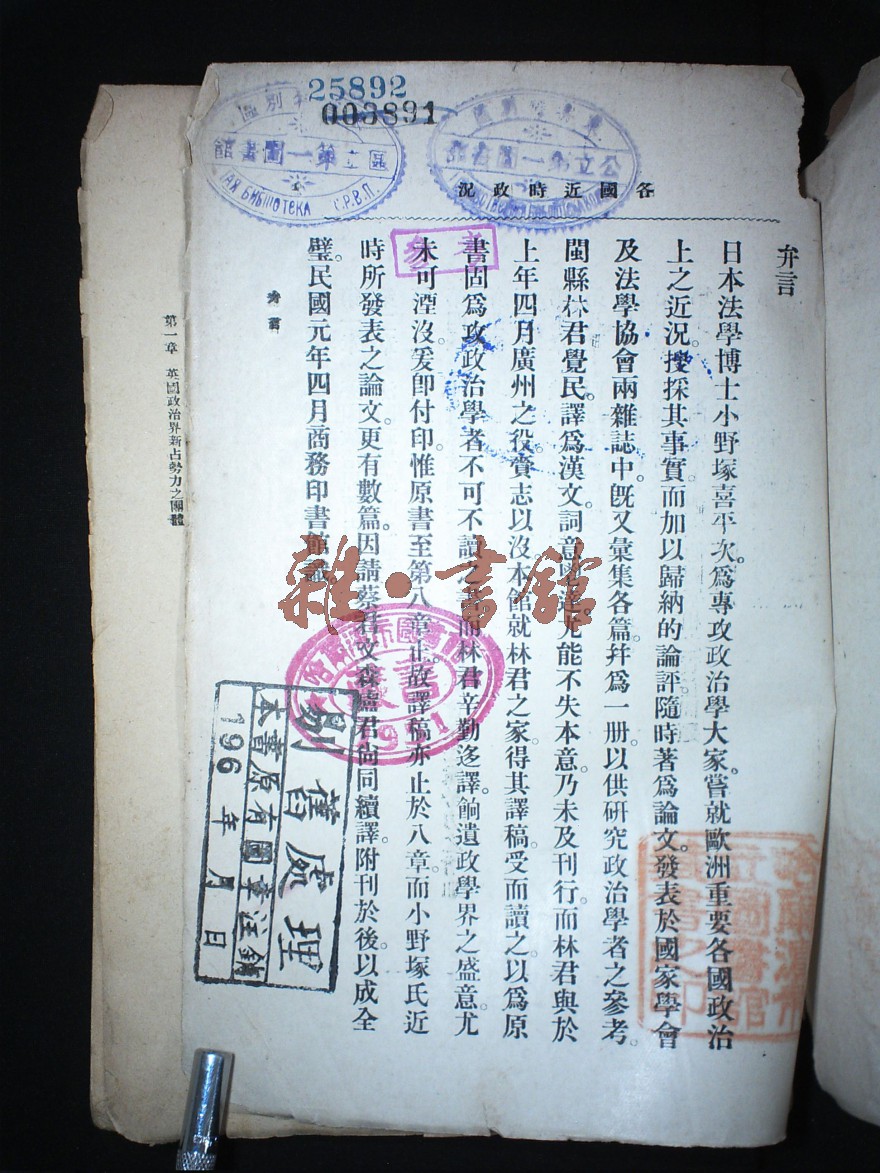 25892
003891
區立第一圖書館
公立第一圖書館
БИБЛІОТЕКА
各國近時政況
弁言
日本法學博士小野塚喜平次。爲專攻政治學大家。嘗就歐洲重要各國政治
上之近況。搜採其事實。而加以歸納的論評。隨時著爲論文。發表於國家學會
及法學協會兩雜誌中。旣又彙集各篇。幷爲一册。以供硏究政治學者之參考。
閩縣林君覺民。譯爲漢文。詞意 尤能不失本意。乃未及刊行。而林君與於
上年四月廣州之役。賚志以沒。本館就林君之家。得其譯稿。受而讀之。以爲原
書固爲攻政治學者不可不讀之書。而林君辛勤迻譯。餉遺政學界之盛意。尤
未可湮沒。爰卽付印。惟原書至第八章止。故譯稿亦止於八章。而小野塚氏近
時所發表之論文。更有數篇。因請蔡君文森盧君尙同續譯。附刊於後。以成全
璧。民國元年四月商務印書館識。
弁言
第一章 英國政治界新占勢力之團體
雜·書館
哈爾濱市圖書館
藏書
1951
剔舊處理
本書原有國章注銷
196 年 月 日